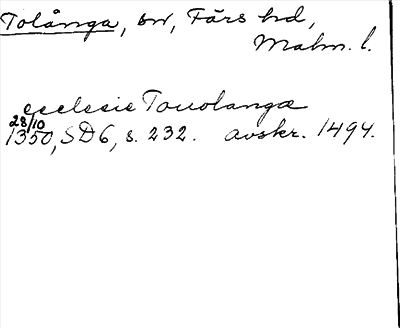 Tolånga, sn, Färs hd,
Malm. l.
ecclesie Touolanga
28/10
1350, SD6, s. 232. avskr. 1494.